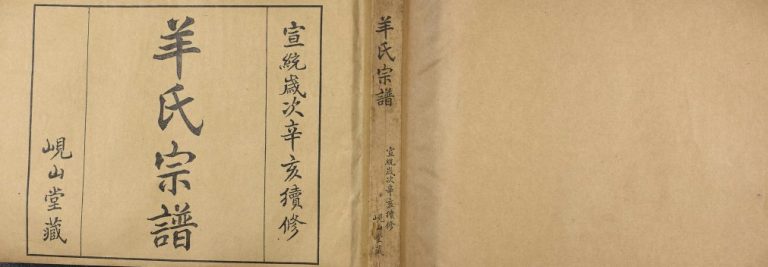 宣統歲次辛亥續修
羊氏宗譜
峴山堂藏
羊氏宗譜
宣統歲次辛亥續修
峴山堂藏